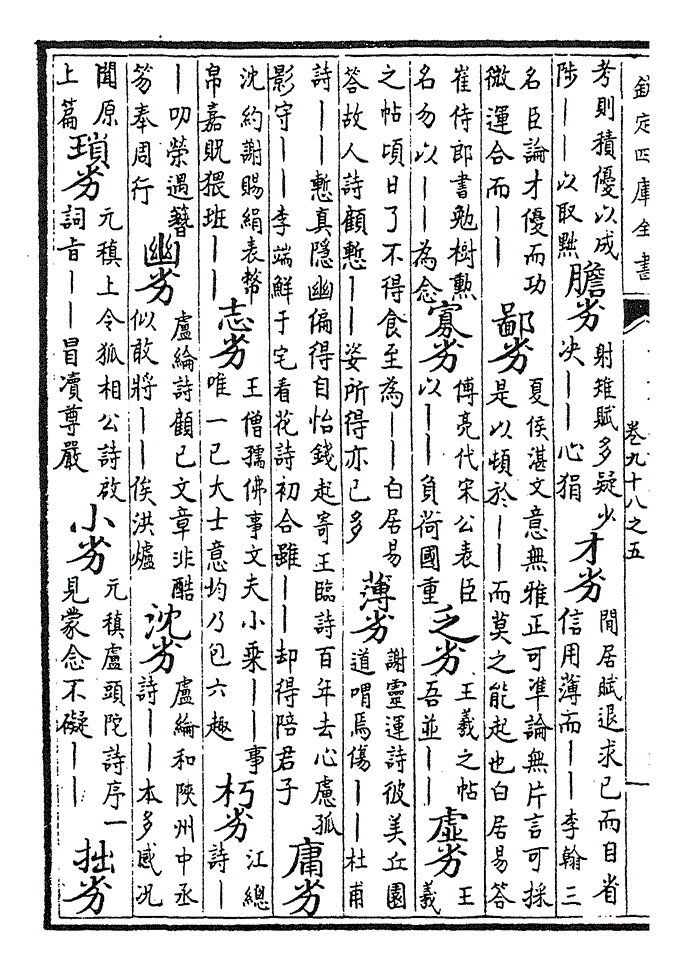 欽定四庫全書
卷九十八之五
考則積優以成
陟||以取黜
膽劣
射雉賦多疑少
决||心狷
才劣
閒居賦退求己而自省
信用薄而||李翰三
名臣論才優而功
微運合而||
鄙劣
夏侯湛文意無雅正可準論無片言可採
是以頓於||而莫之能起也白居易答
崔侍郎書勉樹勲
名勿以||為念
寡劣
傅亮代宋公表臣
以||負荷國重
乏劣
王羲之帖
吾並||
虛劣
王
羲
之帖頃日了不得食至為||白居易
答故人詩顧慙||姿所得亦已多
薄劣
謝靈運詩彼美丘園
道喟焉傷||杜甫
詩||慙真隱幽偏得自怡錢起寄王臨詩百年去心慮孤
影守||李端鮮于宅看花詩初合雖||却得陪君子
庸劣
沈約謝賜絹表幣
帛嘉貺猥班||
志劣
王僧孺佛事文夫小乘||事
唯一己大士意均乃包六趣
朽劣
江總
詩|
|叨榮遇簪
笏奉周行
幽劣
盧綸詩顧己文章非酷
似敢將||俟洪爐
沈劣
盧綸和陝州中丞
詩||本多感况
聞原
上篇
瑣劣
元稹上令狐相公詩啟
詞旨||冒凟尊嚴
小劣
元稹盧頭陀詩序一
見蒙念不礙||
拙劣